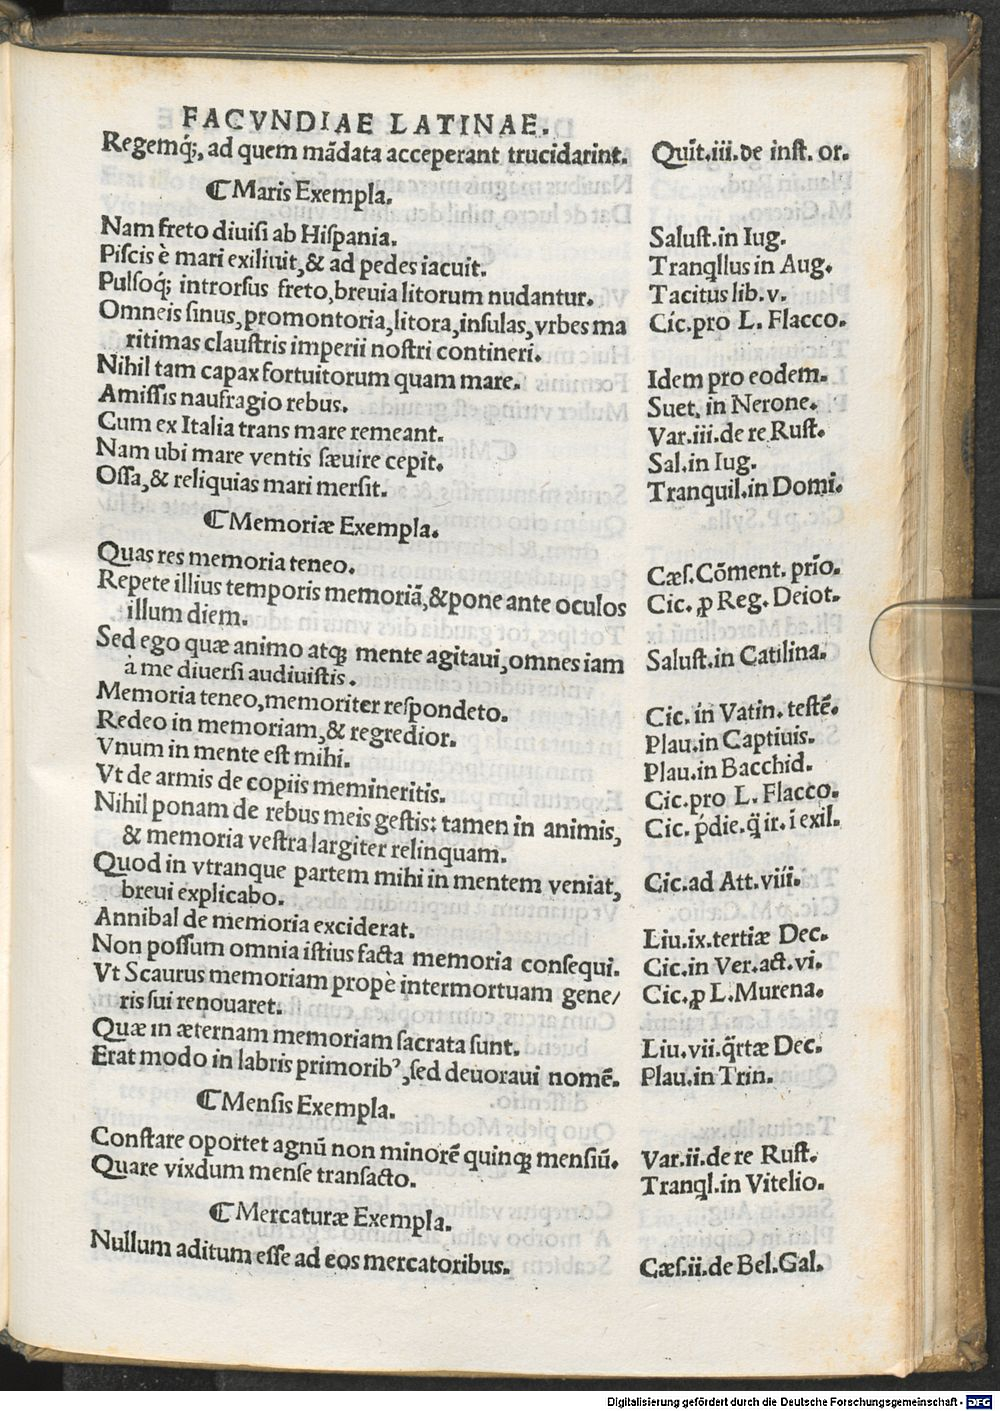 FACVNDIAE LATINAE.
Regemq́;, ad quem mãdata acceperant trucidarint. Quĩt.iii.de inst. or.
¶ Maris Exempla.
Nam freto diuisi ab Hispania. Salust.in Iug.
Piscis è mari exiliuit,& ad pedes iacuit. Tranqllus in Aug.
Pulsoq́; introrsus freto,breuia litorum nudantur. Tacitus lib.v.
Omneis sinus,promontoria,litora,insulas,vrbes ma Cic.pro L. Flacco.
ritimas claustris imperii nostri contineri.
Nihil tam capax fortuitorum quam mare. Idem pro eodem.
Amissis naufragio rebus. Suet. in Nerone.
Cum ex Italia trans mare remeant. Var.iii.de re Rust.
Nam ubi mare ventis sæuire cepit. Sal.in Iug.
Ossa,& reliquias mari mersit. Tranquil.in Domi.
¶ Memoriæ Exempla.
Quas res memoria teneo. Cæs.Cõment. prio.
Repete illius temporis memoriã,&pone ante oculos Cic. ꝓ Reg. Deiot.
illum diem.
Sed ego quæ animo atqꝫ mente agitaui,omnes iam Salust.in Catilina.
à me diuersi audiuistis.
Memoria teneo,memoriter respondeto. Cic. in Vatin. testẽ.
Redeo in memoriam,& regredior. Plau.in Captiuis.
Vnum in mente est mihi. Plau.in Bacchid.
Vt de armis de copiis memineritis. Cic.pro L. Flacco.
Nihil ponam de rebus meis gestis: tamen in animis, Cic. ṕdie.q̃ ir. i exil.
& memoria vestra largiter relinquam.
Quod in vtranque partem mihi in mentem veniat, Cic.ad Att.viii.
breui explicabo.
Annibal de memoria exciderat. Liu.ix.tertiæ Dec.
Non possum omnia istius facta memoria consequi. Cic.in Ver.act.vi.
Vt Scaurus memoriam propè intermortuam gene/ Cic.ꝓ L.Murena.
ris sui renouaret.
Quæ in æternam memoriam sacrata sunt. Liu.vii.q̃rtæ Dec.
Erat modo in labris primoribꝰ,sed deuoraui nomẽ. Plau.in Trin.
¶ Mensis Exempla.
Constare oportet agnũ non minorẽ quinqꝫ mensiũ. Var.ii.de re Rust.
Quare vixdum mense transacto. Tranql.in Vitelio.
¶ Mercaturæ Exempla.
Nullum aditum esse ad eos mercatoribus. Cæs.ii.de Bel.Gal.
Digitalisierung gefördert durch die Deutsche Forschungsgemeinschaft - DFG